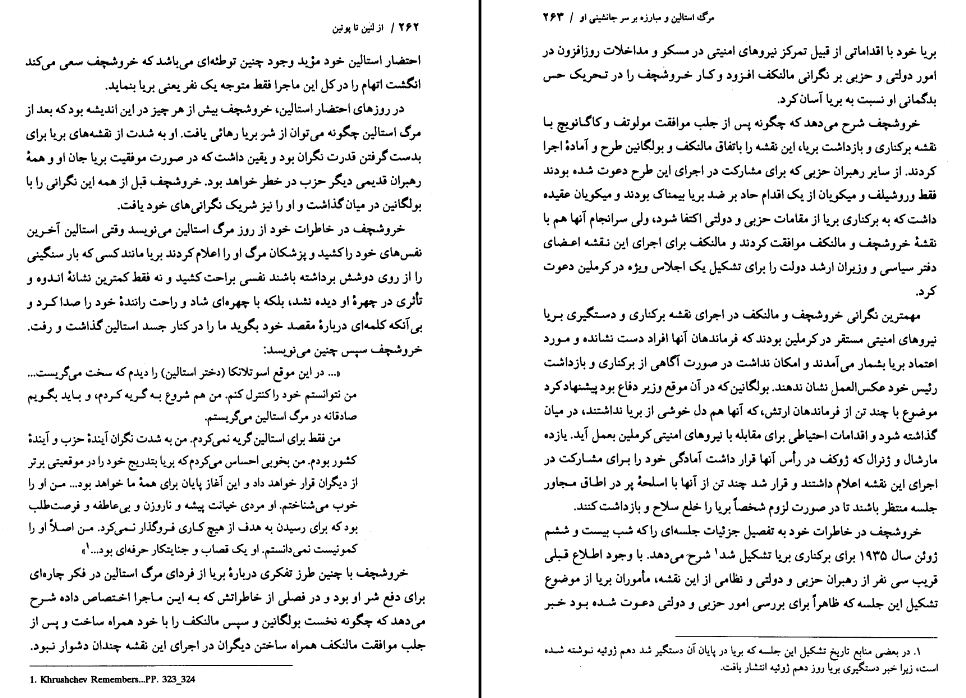 ۲۶۲ / از لنین تا پوتین
احتضار استالین خود مؤید وجود چنین توطئه‌ای می‌باشد که خروشچف سعی می‌کند
انگشت اتهام را در کل این ماجرا فقط متوجه یک نفر یعنی بریا بنماید.
در روزهای احتضار استالین، خروشچف بیش از هر چیز در این اندیشه بود که بعد از
مرگ استالین چگونه می‌توان از شر بریا رهائی یافت. او به شدت از نقشه‌های بریا برای
بدست گرفتن قدرت نگران بود و یقین داشت که در صورت موفقیت بریا جان او و همهٔ
رهبران قدیمی دیگر حزب در خطر خواهد بود. خروشچف قبل از همه این نگرانی را با
بولگانین در میان گذاشت و او را نیز شریک نگرانی‌های خود یافت.
خروشچف در خاطرات خود از روز مرگ استالین می‌نویسد وقتی استالین آخرین
نفس‌های خود را کشید و پزشکان مرگ او را اعلام کردند بریا مانند کسی که بار سنگینی
را از روی دوشش برداشته باشند نفسی براحت کشید و نه فقط کمترین نشانهٔ اندوه و
تأثری در چهرهٔ او دیده نشد، بلکه با چهره‌ای شاد و راحت رانندهٔ خود را صدا کرد و
بی‌آنکه کلمه‌ای دربارهٔ مقصد خود بگوید ما را در کنار جسد استالین گذاشت و رفت.
خروشچف سپس چنین می‌نویسد:
«... در این موقع اسوتلانکا (دختر استالین) را دیدم که سخت می‌گریست...
من نتوانستم خود را کنترل کنم. من هم شروع به گریه کردم، و باید بگویم
صادقانه در مرگ استالین می‌گریستم.
من فقط برای استالین گریه نمی‌کردم. من به شدت نگران آیندهٔ حزب و آیندهٔ
کشور بودم. من بخوبی احساس می‌کردم که بریا بتدریج خود را در موقعیتی برتر
از دیگران قرار خواهد داد و این آغاز پایان برای همهٔ ما خواهد بود... من او را
خوب می‌شناختم. او مردی خیانت پیشه و ناروزن و بی‌عاطفه و فرصت‌طلب
بود که برای رسیدن به هدف از هیچ کاری فروگذار نمی‌کرد. من اصلاً او را
کمونیست نمی‌دانستم. او یک قصاب و جنایتکار حرفه‌ای بود...۱»
خروشچف با چنین طرز تفکری دربارهٔ بریا از فردای مرگ استالین در فکر چاره‌ای
برای دفع شر او بود و در فصلی از خاطراتش که به این ماجرا اختصاص داده شرح
می‌دهد که چگونه نخست بولگانین و سپس مالنکف را با خود همراه ساخت و پس از
جلب موافقت مالنکف همراه ساختن دیگران در اجرای این نقشه چندان دشوار نبود.
1. Khrushchev Remembers...PP. 323_324
مرگ استالین و مبارزه بر سر جانشینی او / ۲۶۳
بریا خود با اقداماتی از قبیل تمرکز نیروهای امنیتی در مسکو و مداخلات روزافزون در
امور دولتی و حزبی بر نگرانی مالنکف افزود و کار خروشچف را در تحریک حس
بدگمانی او نسبت به بریا آسان کرد.
خروشچف شرح می‌دهد که چگونه پس از جلب موافقت مولوتف و کاگانویچ با
نقشه برکناری و بازداشت بریا، این نقشه را باتفاق مالنکف و بولگانین طرح و آمادهٔ اجرا
کردند. از سایر رهبران حزبی که برای مشارکت در اجرای این طرح دعوت شده بودند
فقط وروشیلف و میکویان از یک اقدام حاد بر ضد بریا بیمناک بودند و میکویان عقیده
داشت که به برکناری بریا از مقامات حزبی و دولتی اکتفا شود، ولی سرانجام آنها هم با
نقشهٔ خروشچف و مالنکف موافقت کردند و مالنکف برای اجرای این نقشه اعضای
دفتر سیاسی و وزیران ارشد دولت را برای تشکیل یک اجلاس ویژه در کرملین دعوت
کرد.
مهمترین نگرانی خروشچف و مالنکف در اجرای نقشه برکناری و دستگیری بریا
نیروهای امنیتی مستقر در کرملین بودند که فرماندهان آنها افراد دست نشانده و مورد
اعتماد بریا بشمار می‌آمدند و امکان نداشت در صورت آگاهی از برکناری و بازداشت
رئیس خود عکس‌العمل نشان ندهند. بولگانین که در آن موقع وزیر دفاع بود پیشنهاد کرد
موضوع با چند تن از فرماندهان ارتش، که آنها هم دل خوشی از بریا نداشتند، در میان
گذاشته شود و اقدامات احتیاطی برای مقابله با نیروهای امنیتی کرملین بعمل آید. یازده
مارشال و ژنرال که ژوکف در رأس آنها قرار داشت آمادگی خود را برای مشارکت در
اجرای این نقشه اعلام داشتند و قرار شد چند تن از آنها با اسلحهٔ پر در اطاق مجاور
جلسه منتظر باشند تا در صورت لزوم شخصاً بریا را خلع سلاح و بازداشت کنند.
خروشچف در خاطرات خود به تفصیل جزئیات جلسه‌ای را که شب بیست و ششم
ژوئن سال ۱۹۳۵ برای برکناری بریا تشکیل شد۱ شرح می‌دهد. با وجود اطلاع قبلی
قریب سی نفر از رهبران حزبی و دولتی و نظامی از این نقشه، مأموران بریا از موضوع
تشکیل این جلسه که ظاهراً برای بررسی امور حزبی و دولتی دعوت شده بود خبر
۱. در بعضی منابع تاریخ تشکیل این جلسه که بریا در پایان آن دستگیر شد دهم ژوئیه نوشته شده
است، زیرا خبر دستگیری بریا روز دهم ژوئیه انتشار یافت.